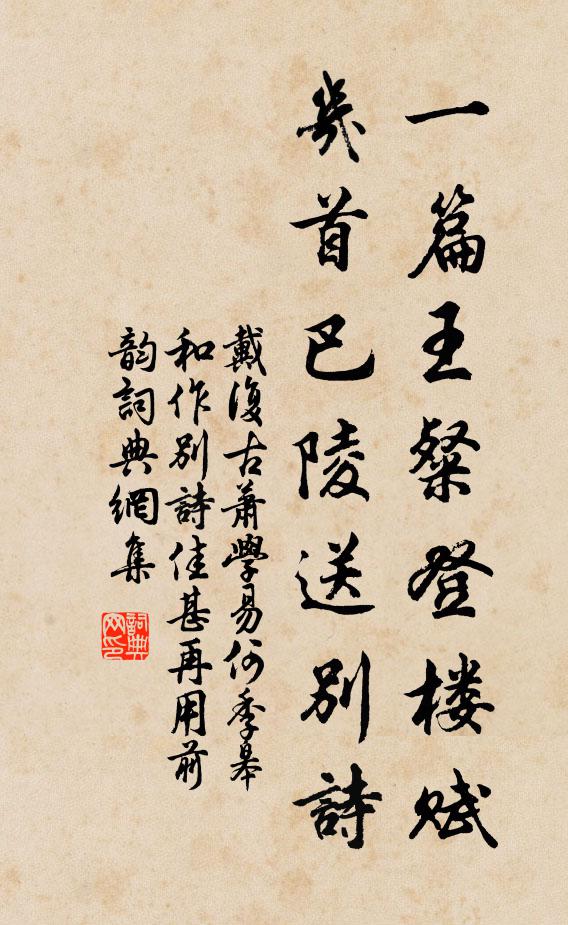 一篇王粲登楼赋
几首巴陵送別詩
戴復古蕭學易何季皋
和作別詩佳甚再用前
韵詞典網集
詞典网印